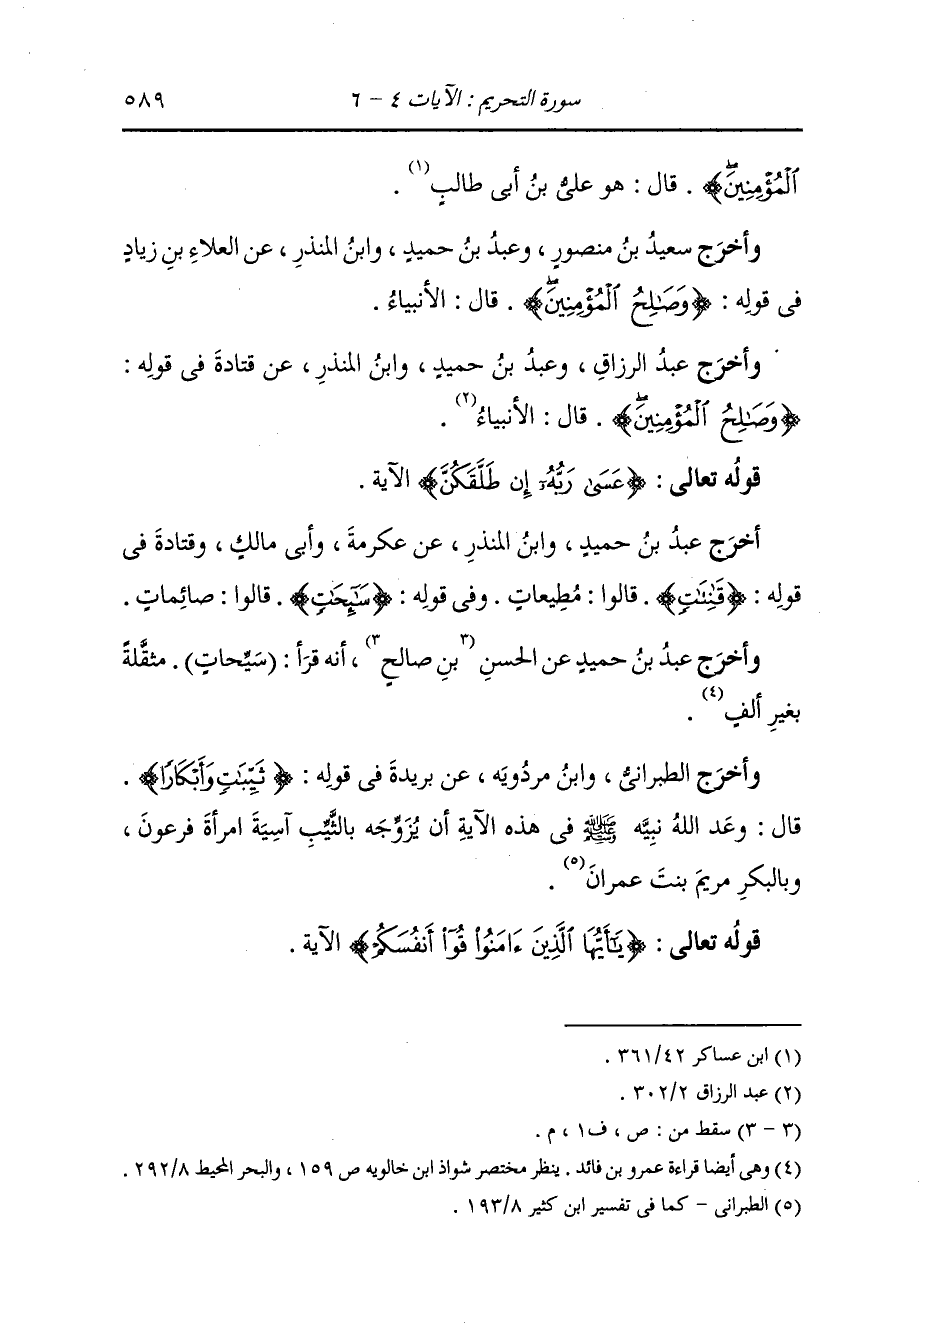 سورة التحريم : الآيات ٤ - ٦ ٥٨٩
ٱلْمُؤْمِنِينَۖ﴾ . قال : هو علىُّ بنُ أبى طالبٍ(١) .
وأخرَج سعيدُ بنُ منصورٍ ، وعبدُ بنُ حميدٍ ، وابنُ المنذرِ ، عن العلاءِ بنِ زيادٍ
فى قولِه : ﴿وَصَٰلِحُ ٱلْمُؤْمِنِينَۖ﴾ . قال : الأنبياءُ .
وأخرَج عبدُ الرزاقِ ، وعبدُ بنُ حميدٍ ، وابنُ المنذرِ ، عن قتادةَ فى قولِه :
﴿وَصَٰلِحُ ٱلْمُؤْمِنِينَۖ﴾ . قال : الأنبياءُ(٢) .
قولُه تعالى : ﴿عَسَىٰ رَبُّهُۥٓ إِن طَلَّقَكُنَّ﴾ الآية .
أخرَج عبدُ بنُ حميدٍ ، وابنُ المنذرِ ، عن عكرمةَ ، وأبى مالكٍ ، وقتادةَ فى
قولِه : ﴿قَٰنِتَٰتٍ﴾ . قالوا : مُطِيعاتٍ . وفى قولِه : ﴿سَٰٓئِحَٰتٍ﴾ . قالوا : صائِماتٍ .
وأخرَج عبدُ بنُ حميدٍ عن الحسنِ (٣بنِ صالحٍ٣) ، أنه قرَأ : (سَيِّحاتٍ) . مثقَّلةً
بغيرِ ألفٍ(٤) .
وأخرَج الطبرانىُّ ، وابنُ مردُويَه ، عن بريدةَ فى قولِه : ﴿ثَيِّبَٰتٍ وَأَبْكَارًا﴾ .
قال : وعَد اللهُ نبيَّه ﷺ فى هذه الآيةِ أن يُزَوِّجَه بالثَّيِّبِ آسيَةَ امرأةَ فرعونَ ،
وبالبكرِ مريمَ بنتَ عمرانَ(٥) .
قولُه تعالى : ﴿يَٰٓأَيُّهَا ٱلَّذِينَ ءَامَنُوا۟ قُوٓا۟ أَنفُسَكُمْ﴾ الآية .
(١) ابن عساكر ٣٦١/٤٢ .
(٢) عبد الرزاق ٣٠٢/٢ .
(٣ - ٣) سقط من : ص ، ف١ ، م .
(٤) وهى أيضا قراءة عمرو بن فائد . ينظر مختصر شواذ ابن خالويه ص ١٥٩ ، والبحر المحيط ٢٩٢/٨ .
(٥) الطبرانى - كما فى تفسير ابن كثير ١٩٣/٨ .